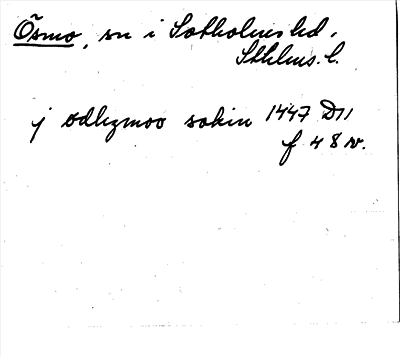 Ösmo, sn i Sotholms hd,
Sthlms. l.
j ødhzmoo sokin 1447 D11
f 48 v.